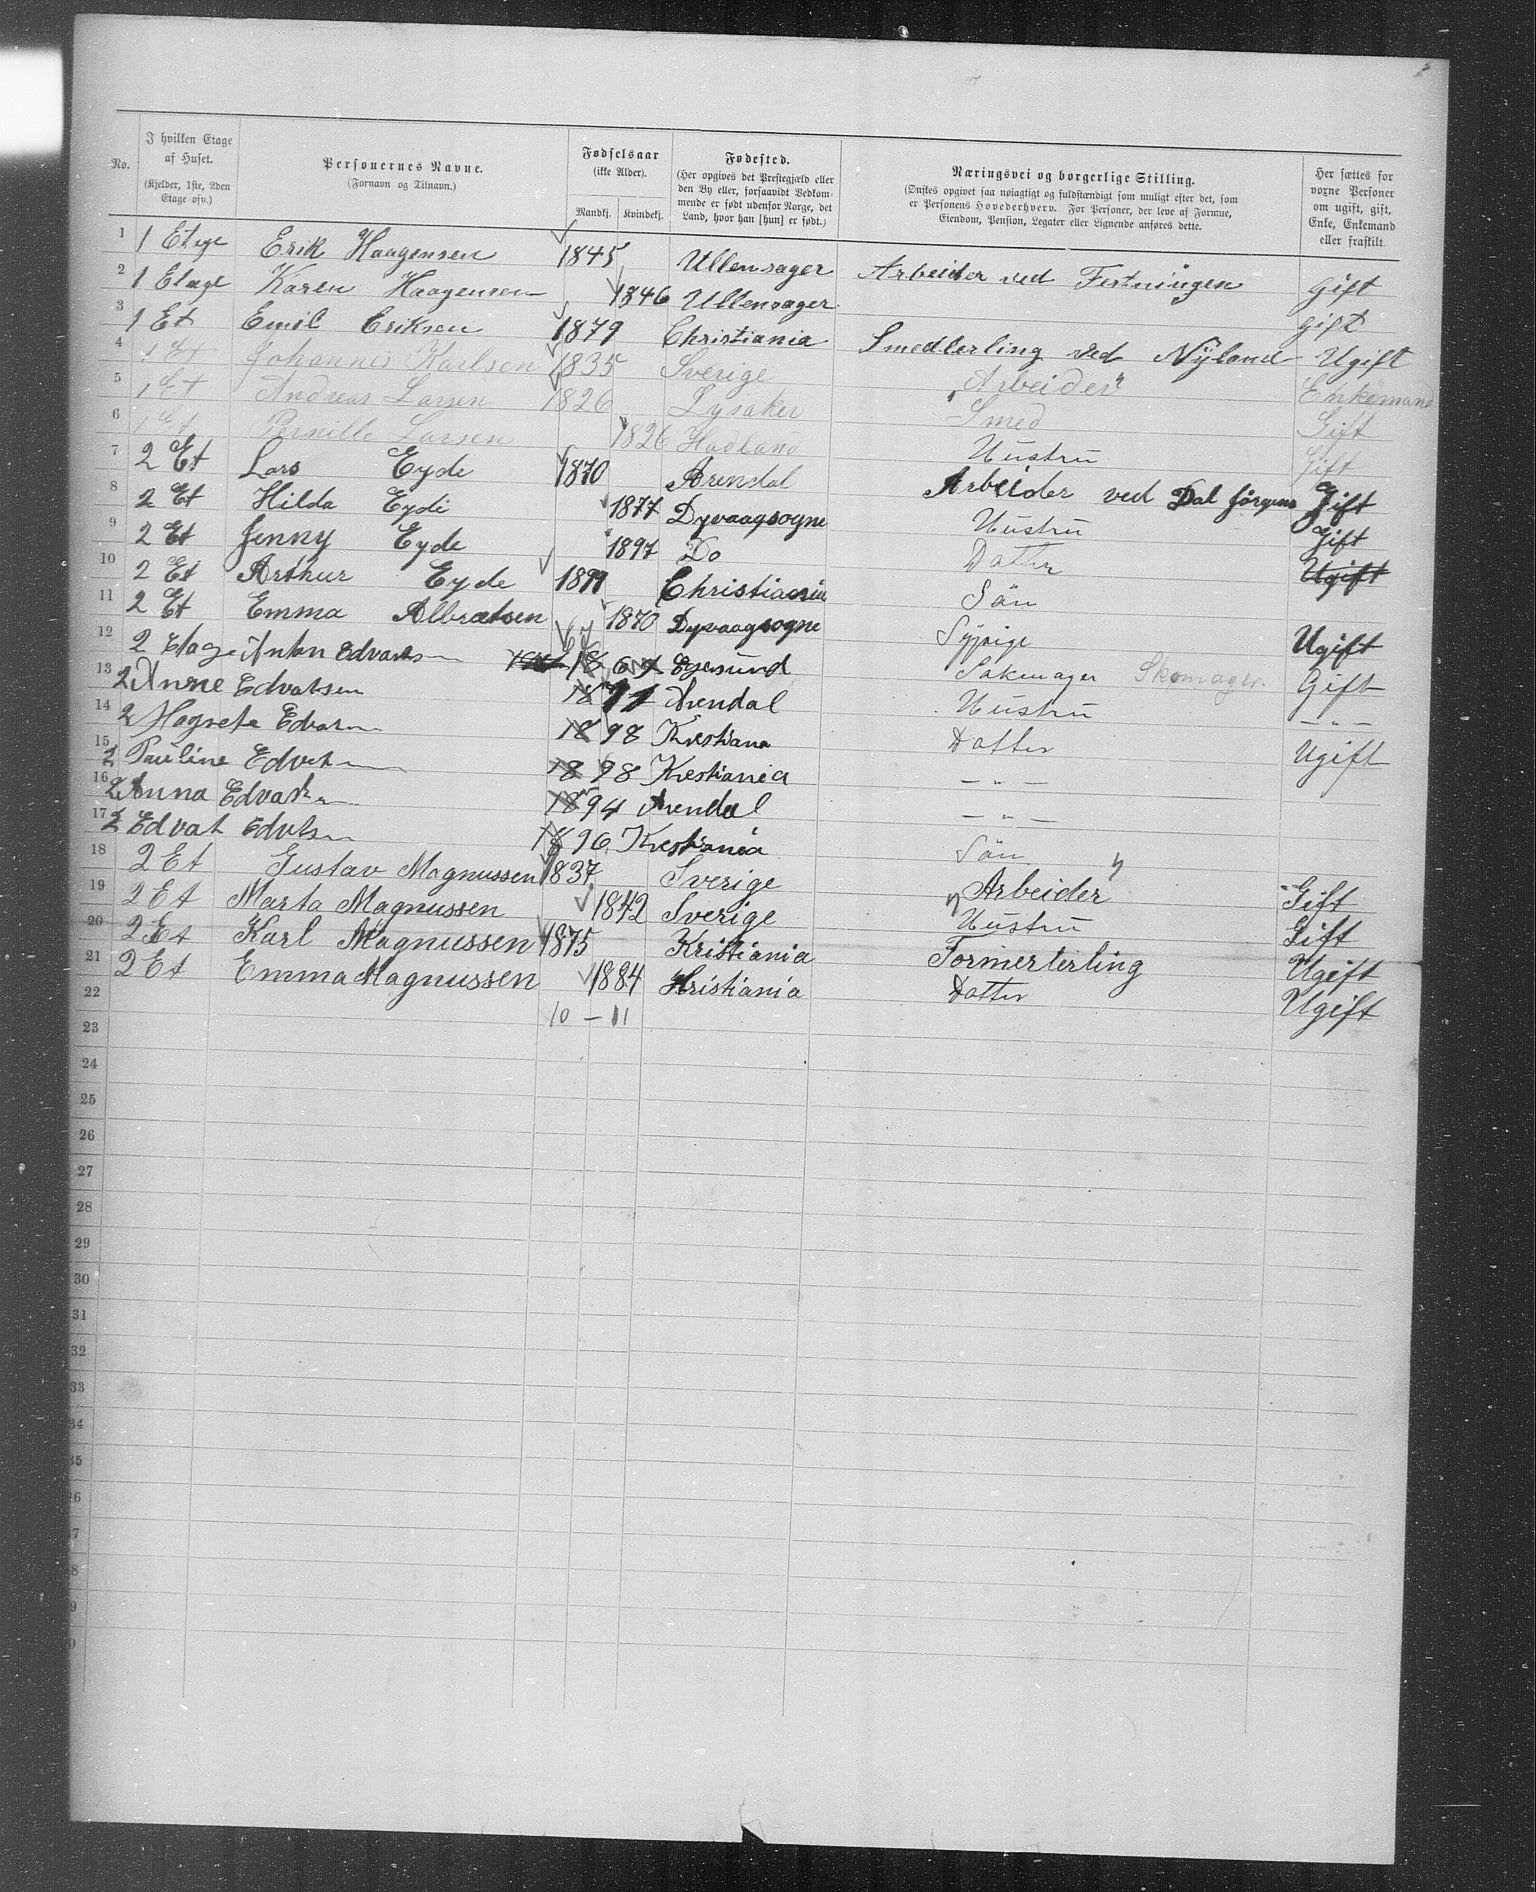 No. | I hvilken Etage af Huset. (Kjelder, 1ste, 2den Etage osv.) | Personernes Navne. (Fornavn og Tilnavn.) | Fødselsaar (ikke Alder). Mandkj. Kvindekj. | Fødested. (Her opgives det Prestegjæld eller den By eller, forsaavidt Vedkommende er født udenfor Norge, det Land, hvor han [hun] er født.) | Næringsvei og borgerlige Stilling. (Ønskes opgivet saa nøiagtigt og fuldstændigt som muligt efter det, som er Personens Hovederhverv. For Personer, der leve af Formue, Eiendom, Pension, Legater eller Lignende anføres dette. | Her sættes for voxne Personer om ugift, gift, Enke, Enkemand eller fraskilt.
1 1 Etage Erik Haagensen 1845 Ullensager Arbeider ved Festningen gift
2 1 Etage Karen Haagensen 1846 Ullensager gift
3 1 Et Emil Eriksen 1879 Christiania Smedlerling ved Nyland Ugift
4 1 Et Johannes Karlsen 1835 Sverige Arbeider Enkemand
5 1 Et Andreas Larsen 1826 Lysaker Smed Gift
6 1 Et Pernille Larsen 1826 Hadland Hustru Gift
7 2 Et Lars Eyde 1870 Arendal Arbeider ved Dal Jörgens Gift
8 2 Et Hilda Eyde 1877 Dyvaagsogne Hustru Gift
9 2 Et Jenny Eyde 1897 Do Datter Ugift
10 2 Et Arthur Eyde 1899 Christiania Sön
11 2 Et Emma Albretsen 1870 Dyvaagsogne Sypige Ugift
12 2 Etage Anton Edvarsen 1867 Egersund Sakmager Skomager. Gift
13 2 Anne Edvatsen 1871 Arendal Hustru — " —
14 2 Magreta Edvarn 1898 Krestiana Datter Ugift
15 2 Pauline Edvat 1898 Krestiania — " —
16 2 Anna Edvats 1894 Arendal — " —
17 2 Edvat Edvtsn 1896 Krestiania Sön
18 2 Et Gustav Magnussen 1837 Sverige Arbeider Gift
19 2 Et Marta Magnussen 1842 Sverige Hustru Gift
20 2 Et Karl Magnussen 1875 Kristiania Formerlerling Ugift
21 2 Et Emma Magnussen 1884 Kristiania Datter Ugift
22 10 — 11
23
24
25
26
27
28
29
30
31
32
33
34
35
36
7
8
9
0